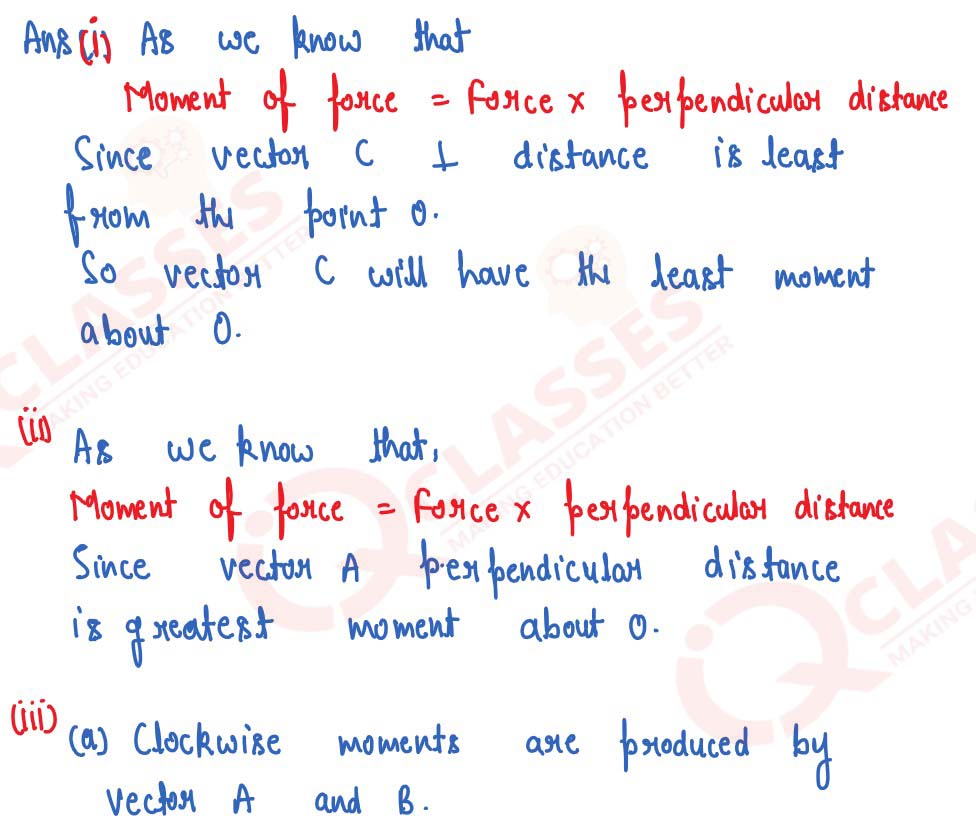 Ans (i) As we know that
Moment of force = Force x perpendicular distance
Since vector C ⊥ distance is least
from the point O.
So vector C will have the least moment
about O.
(ii) As we know that,
Moment of force = Force x perpendicular distance
Since vector A perpendicular distance
is greatest moment about O.
(iii) (a) Clockwise moments are produced by
vector A and B.
CLASSES
MAKING EDUCATION BETTER
IQ CLASSES
MAKING EDUCATION BETTER
IQ CLA
MAKING